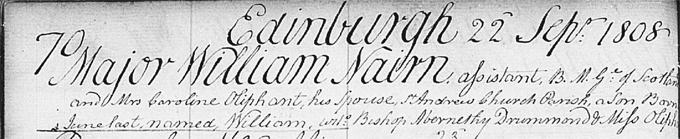 Edinburgh 22 Septr. 1808
To
Major William Nairn, assistant, B. M. Gl. of Scotland
and Mrs Caroline Oliphant, his Spouse, St Andrews Church Parish, a Son Born
June last, named, William, Bishop Abernethy Drummond & Miss Oliph